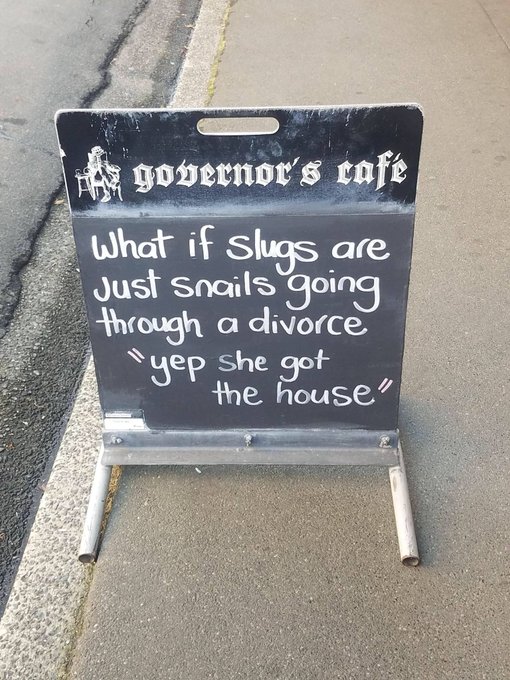 governor's café
What if slugs are
Just snails going
through a divorce
"yep she got
the house"